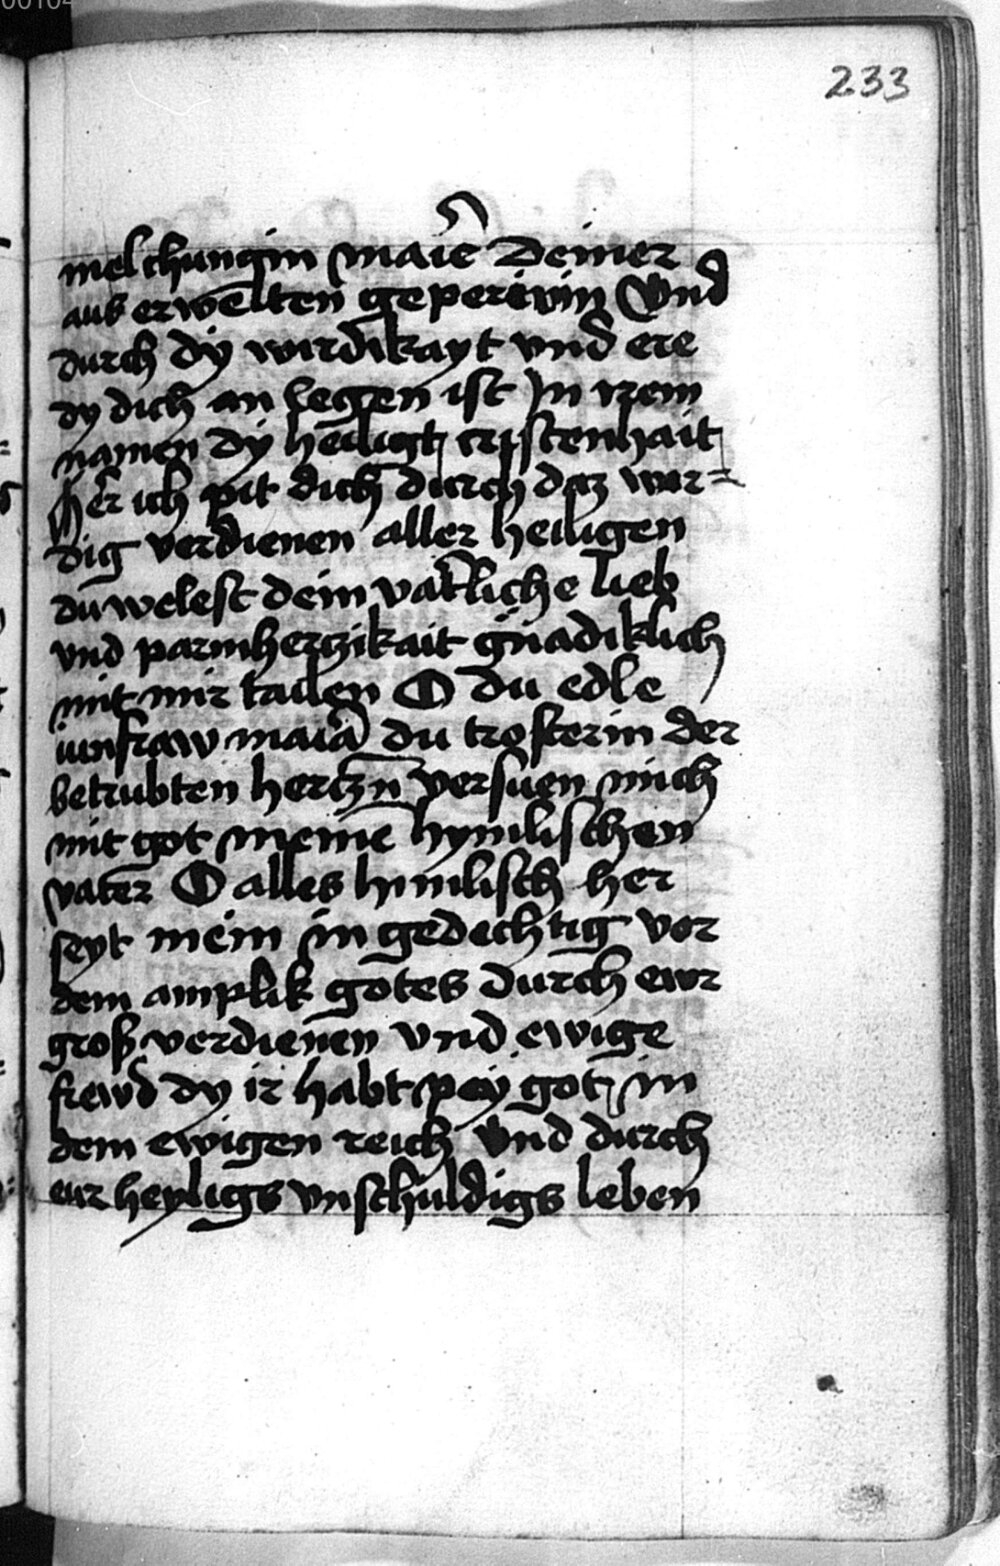 233
mel chungin maie Deiner
aus erwelten gepererin Vnd
durch dy wirdikayt vnd ere
dy dich an legen ist In irem
namen dy heiligt cristenhait
Her ich pit dich durch daz wir-
dig verdienen aller heiligen
du welest dein vatrliche lieb
vnd parmherczikait gnadiklich
mit mir tailen O du edle
iunfraw maia du trosterin der
betrubten hertzn versuen mich
mit got meine hymlischen
vater O alles himlisch her
seyt mein in gedechtig vor
dem amplik gotes durch ewr
gross verdienen vnd ewige
frewd dy ir habt pey got in
dem ewigen reich Vnd durch
eur heyligs vnschuldigs leben